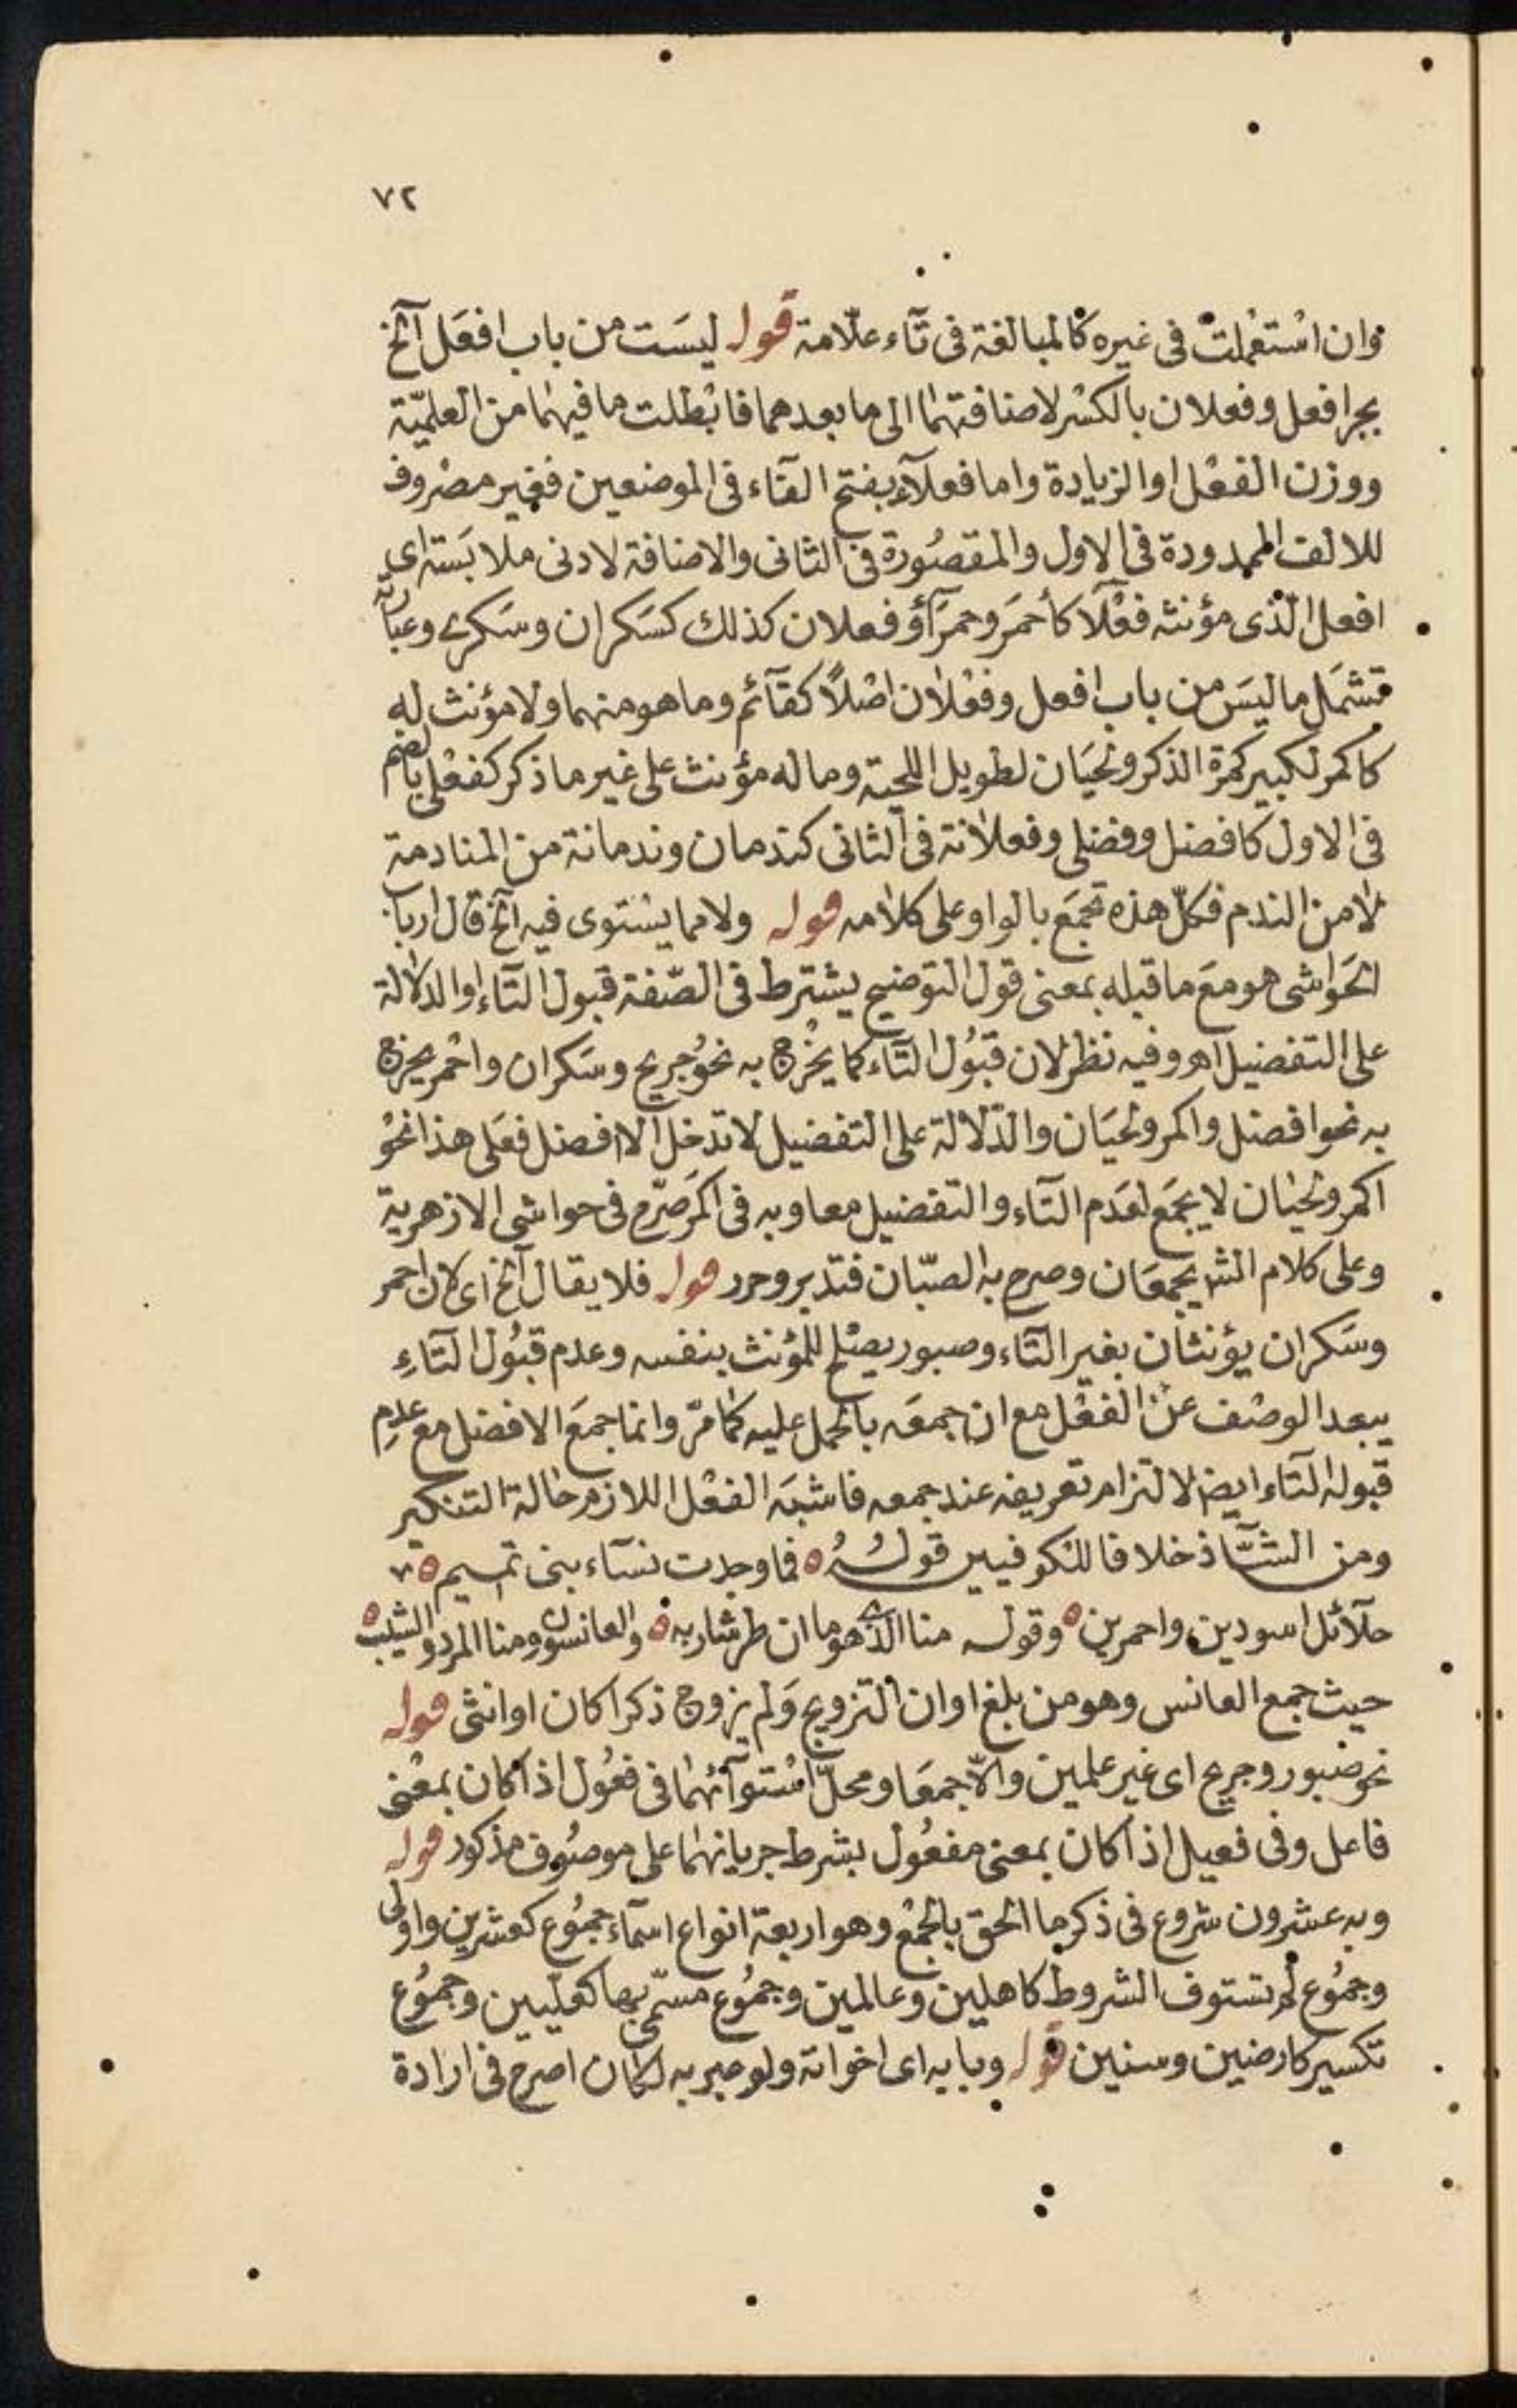 ٧٢
وان اسْتعْملتْ فى غيره كالمبالغة فى تآء علّامة قوله ليسَت من باب افعَل آلخ
بجر افعل وفعلان بالكسْر لاضافتهما الى ما بعدهما فابْطلت ما فيهما من العلميّة
ووزن الفعْل او الزيادة واما فعلآء بفتح الفآء فى الموضعين فغير مصْروف
للالف الممدودة فى الاول والمقصُورة فى الثانى والاضافة لادنى ملابَسته اى
افعل الّذى مؤنثه فعْلآ كأحمَر وحمرَآ أو فعلان كذلك كسَكران وسَكرى وعبارته
تشمَل ما ليسَ من باب افعل وفعْلان اصْلاً كقآئم وما هو منهما ولا مؤنث له
كاكمر لكبير كمرة الذكر ولحيَان لطويل اللحية وما له مؤنث على غير ما ذكر كفعْلى بالضم
فى الاول كافضل وفضلى وفعلانة فى الثانى كندمان وندمانة من المنادمة
لا من الندم فكلّ هذه تجمَع بالواو على كلامه قوله ولا مما يسْتوى فيه آلخ قال ارباب
الحَواشى هو معَ ما قبله بمعنى قول التوضيح يشترط فى الصّفة قبول التآء او الدلالة
على التفضيل اهـ وفيه نظر لان قبُول التآء كما يخْرج به نحوُ جريح وسَكران واحْمر يخرج
به نحو افضل واكمر ولحيَان والدّلالة على التفضيل لا تدخل الا افضل فعَلى هذا نحوُ
اكمر ولحيَان لا يجمَع لعَدَم التآء والتفضيل معا وبه فى اكمَر صَرّح فى حواشى الازهرية
وعلى كلام الشـ يجمعَان وصرح به الصبّان فتدبر وحرر قوله فلا يقال آلخ اى لان احمر
وسَكران يؤنثان بغير التآء وصبور يصْلح للمؤنث بنفسه وعدم قبُول التآءِ
يبعد الوصْف عن الفعْل مع ان جمعَه بالحمل عليه كما مرّ وانما جمعَ الافضل مع عدم
قبوله التآء ايضا لالتزام تعريفه عند جمعه فاشبَه الفعْل اللازم حالة التنكير
ومن الشآذ خلافا للكوفيين قولُهُ ه فما وجدت نسآء بنى تميم ه
حلآئل اسودين واحمرين ه وقوله منا الذى هو ما ان طر شاربه ه والعانسون ومنا المرد والشيب ه
حيث جمع العانس وهو من بلغ اوان التزويج وَلم يزوج ذكرا كان او انثى قوله
نحو صبور وجريح اى غير علمين والّا جمعَا ومحلّ اسْتوآئهما فى فعُول اذا كان بمعْنى
فاعل وفى فعيل اذا كان بمعنى مفعُول بشرط جريانهما على موصُوف مذكور قوله
وبه عشرون شروع فى ذكر ما الحق بالجمْع وهو اربعة انواع اسمآء جمُوع كعشرين واولى
وجمُوع لم تستوف الشروط كاهلين وعالمين وجمُوع مسمّى بها كعليين وجمُوع
تكسير كارضين وسنين قوله وبابه اى اخواته ولو عبر به لكان اصرح فى ارادة